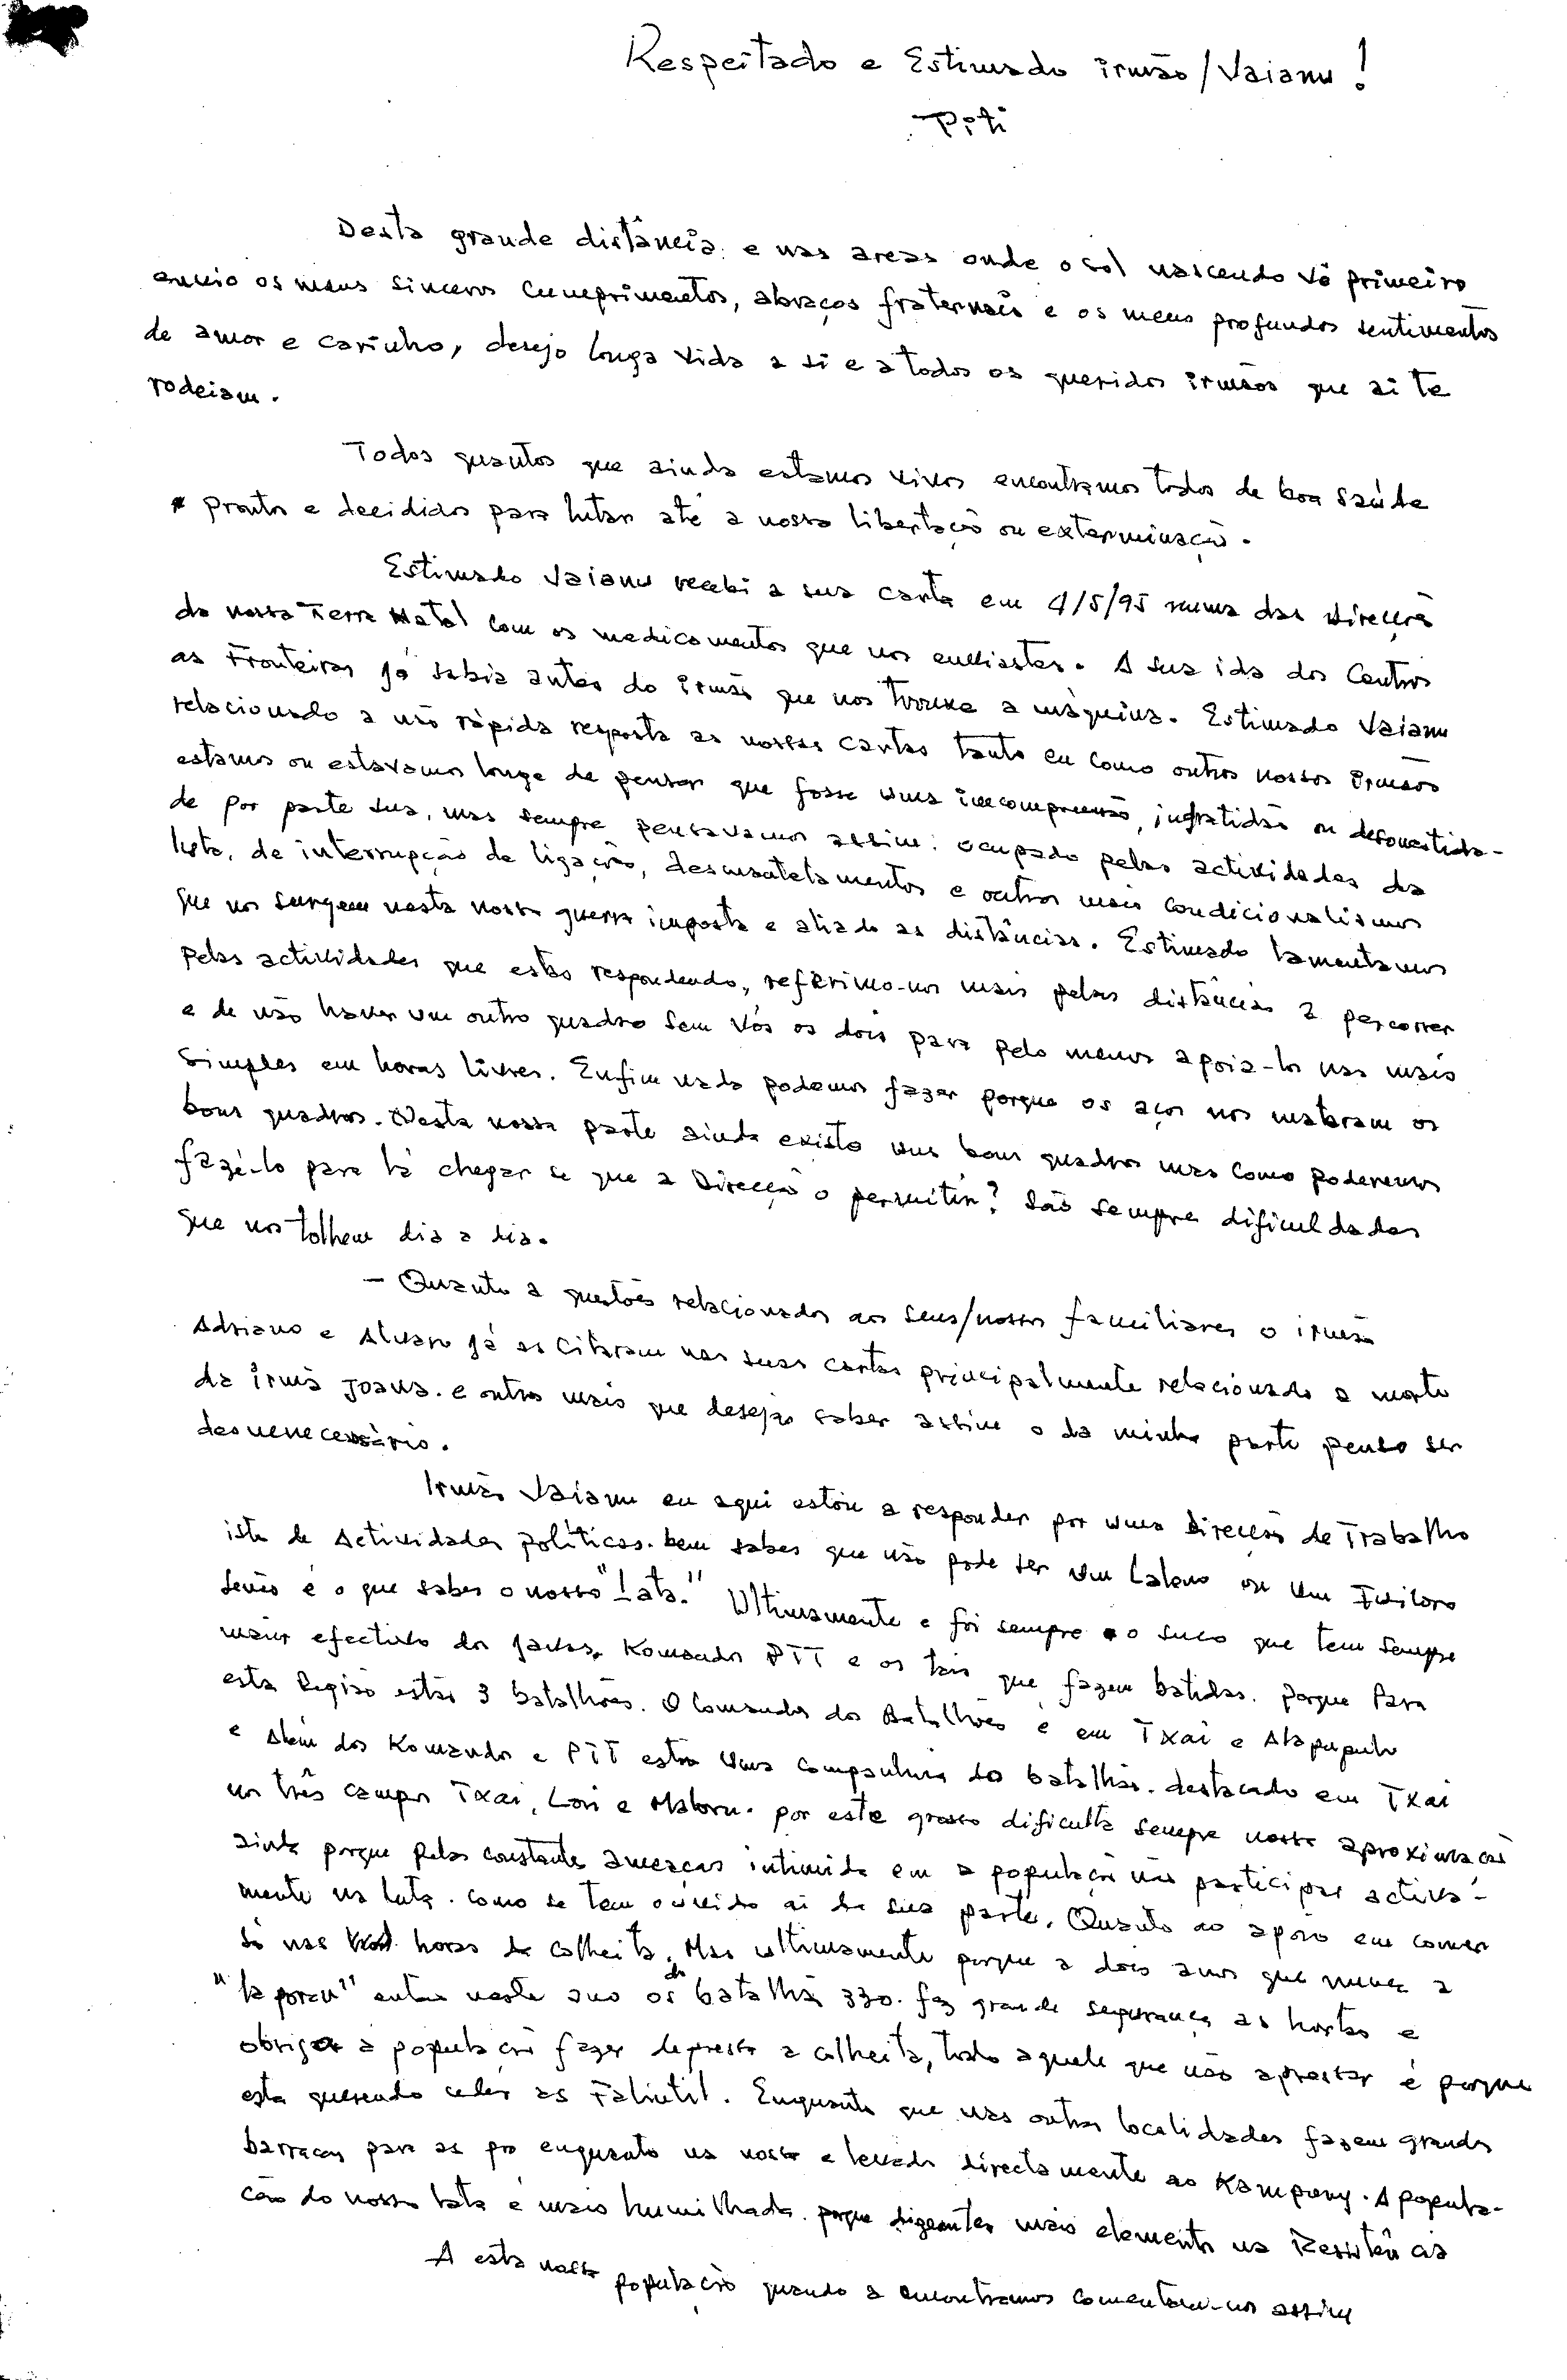 Respeitado e Estimado irmão/Vaianu!
Piti
Desta grande distância e nas areas onde o sol nascendo vê primeiro
envio os meus sinceros cumprimentos, abraços fraternais e os meus profundos sentimentos
de amor e carinho, desejo longa vida a si e a todos os queridos irmãos que ai te
rodeiam.
Todos quantos que ainda estamos vivos encontramos todos de boa saúde
prontos e decididos para lutar até a nossa libertação ou exterminação.
Estimado Vaianu recebi a sua carta em 4/5/95 numa das Direcções
da nossa Terra Natal com os medicamentos que nos enviastes. A sua ida dos Centros
as Fronteiras já sabia antes do irmão que nos trouxe a máquina. Estimado Vaianu
relacionado a não rápida resposta as nossas cartas tanto eu como outros nossos irmãos
estamos ou estavamos longe de pensar que fosse uma incompreensão, ingratidão ou desonestida-
de por parte sua, mas sempre pensavamos assim: ocupado pelas actividades da
luta, de interrupção de ligação, desmantelamentos e outros mais condicionalismos
que nos surgem nesta nossa guerra imposta e aliado as distâncias. Estimado lamentamos
pelas actividades que estás respondendo, referimo-nos mais pelas distâncias a percorrer
e de não haver um outro quadro sem vós os dois para pelo menos apoia-los nas mais
simples em horas livres. Enfim nada podemos fazer porque os açor nos mataram os
bons quadros. Nesta nossa parte ainda existe uns bons quadros mas como poderemos
fazê-lo para lá chegar se que a Direcção o permitir? São sempre dificuldades
que nos tolhem dia a dia.
- Quanto a questões relacionados aos seus/nossos familiares o irmão
Adriano e Alvaro já as citaram nas suas cartas principalmente relacionado a morte
da irmã Joana. e outros mais que desejas saber assim o da minha parte penso ser
desnenecessário.
Irmão Vaianu eu aqui estou a responder por uma Direcção de Trabalho
isto de Actividades políticas. bem sabes que não pode ser um Laleno ou um Fuiloro
senão é o que sabes o nosso "Lata." Ultimamente e foi sempre o suco que tem sempre
maior efectivo dos javas, Komandos PTT e os tais que fazem batidas. porque Para
esta Região estão 3 batalhões. O Comandos dos Batalhões é em Txai e Alapupulo
e além dos Komando e PTT esta uma companhia do batalhão. destacado em Txai
nos três campos Txai, Lori e Maloru. por este grosso dificulta sempre nossa aproximação
ainda porque pelas constantes ameaças intimida em a população não participar activa-
mente na luta. como se tem ouvido ai da sua parte. Quanto ao apoio em comer
só nas horas da colheita. Mas ultimamente porque a dois anos que nunca a
neste ano os do batalhão 330. faz grande segurança as hortas e
obrigar a população fazer depressa a colheita, todo aquele que não aprestar é porque
esta querendo ceder as Falintil. Enquanto que nas outras localidades fazem grandes
barracas para as enquanto na nossa e levado directamente ao Kampong. A popula-
ção do nosso Lata é mais humilhada. porque mais elementos na Resistência
A esta nossa população quando a encontramos comentam-nos assim